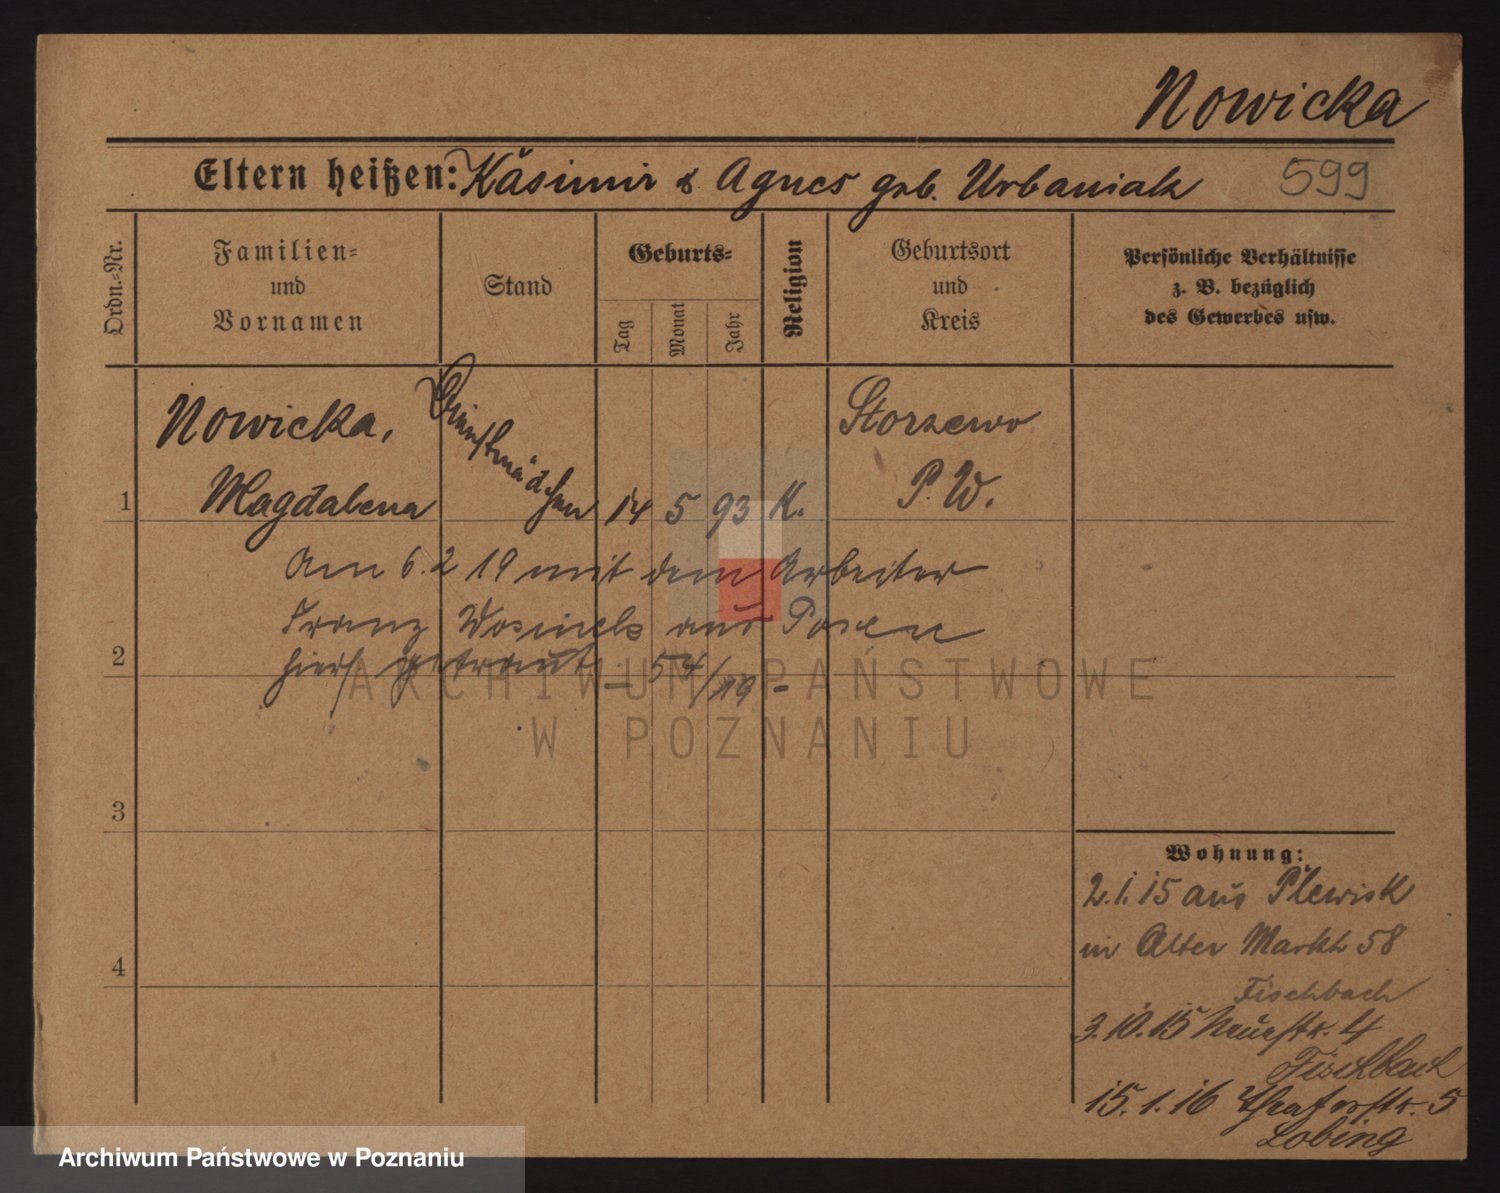 Nowicka
Eltern heißen: Kasimir & Agnes geb. Urbaniak 599
Ordn.-Nr.
Familien-
und
Vornamen
Stand
Geburts-
Tag
Monat
Jahr
Religion
Geburtsort
und
Kreis
Persönliche Verhältnisse
z. B. bezüglich
des Gewerbes usw.
Nowicka,
Magdalena
Dienstmädchen
1
14 5 93 K.
Storzewo
P. W.
Am 6. 2 19 mit dem Arbeiter
Franz aus Posen
hiers. getraut - 54/19 -
2
3
4
Wohnung:
2. 1. 15 aus Plewisk
in Alter Markt 58
Fischbach
3. 10. 15 Neuestr. 4
Fischbach
15. 1. 16 Theaterstr. 5
Lobing
ARCHIWUM PAŃSTWOWE
W POZNANIU
Archiwum Państwowe w Poznaniu